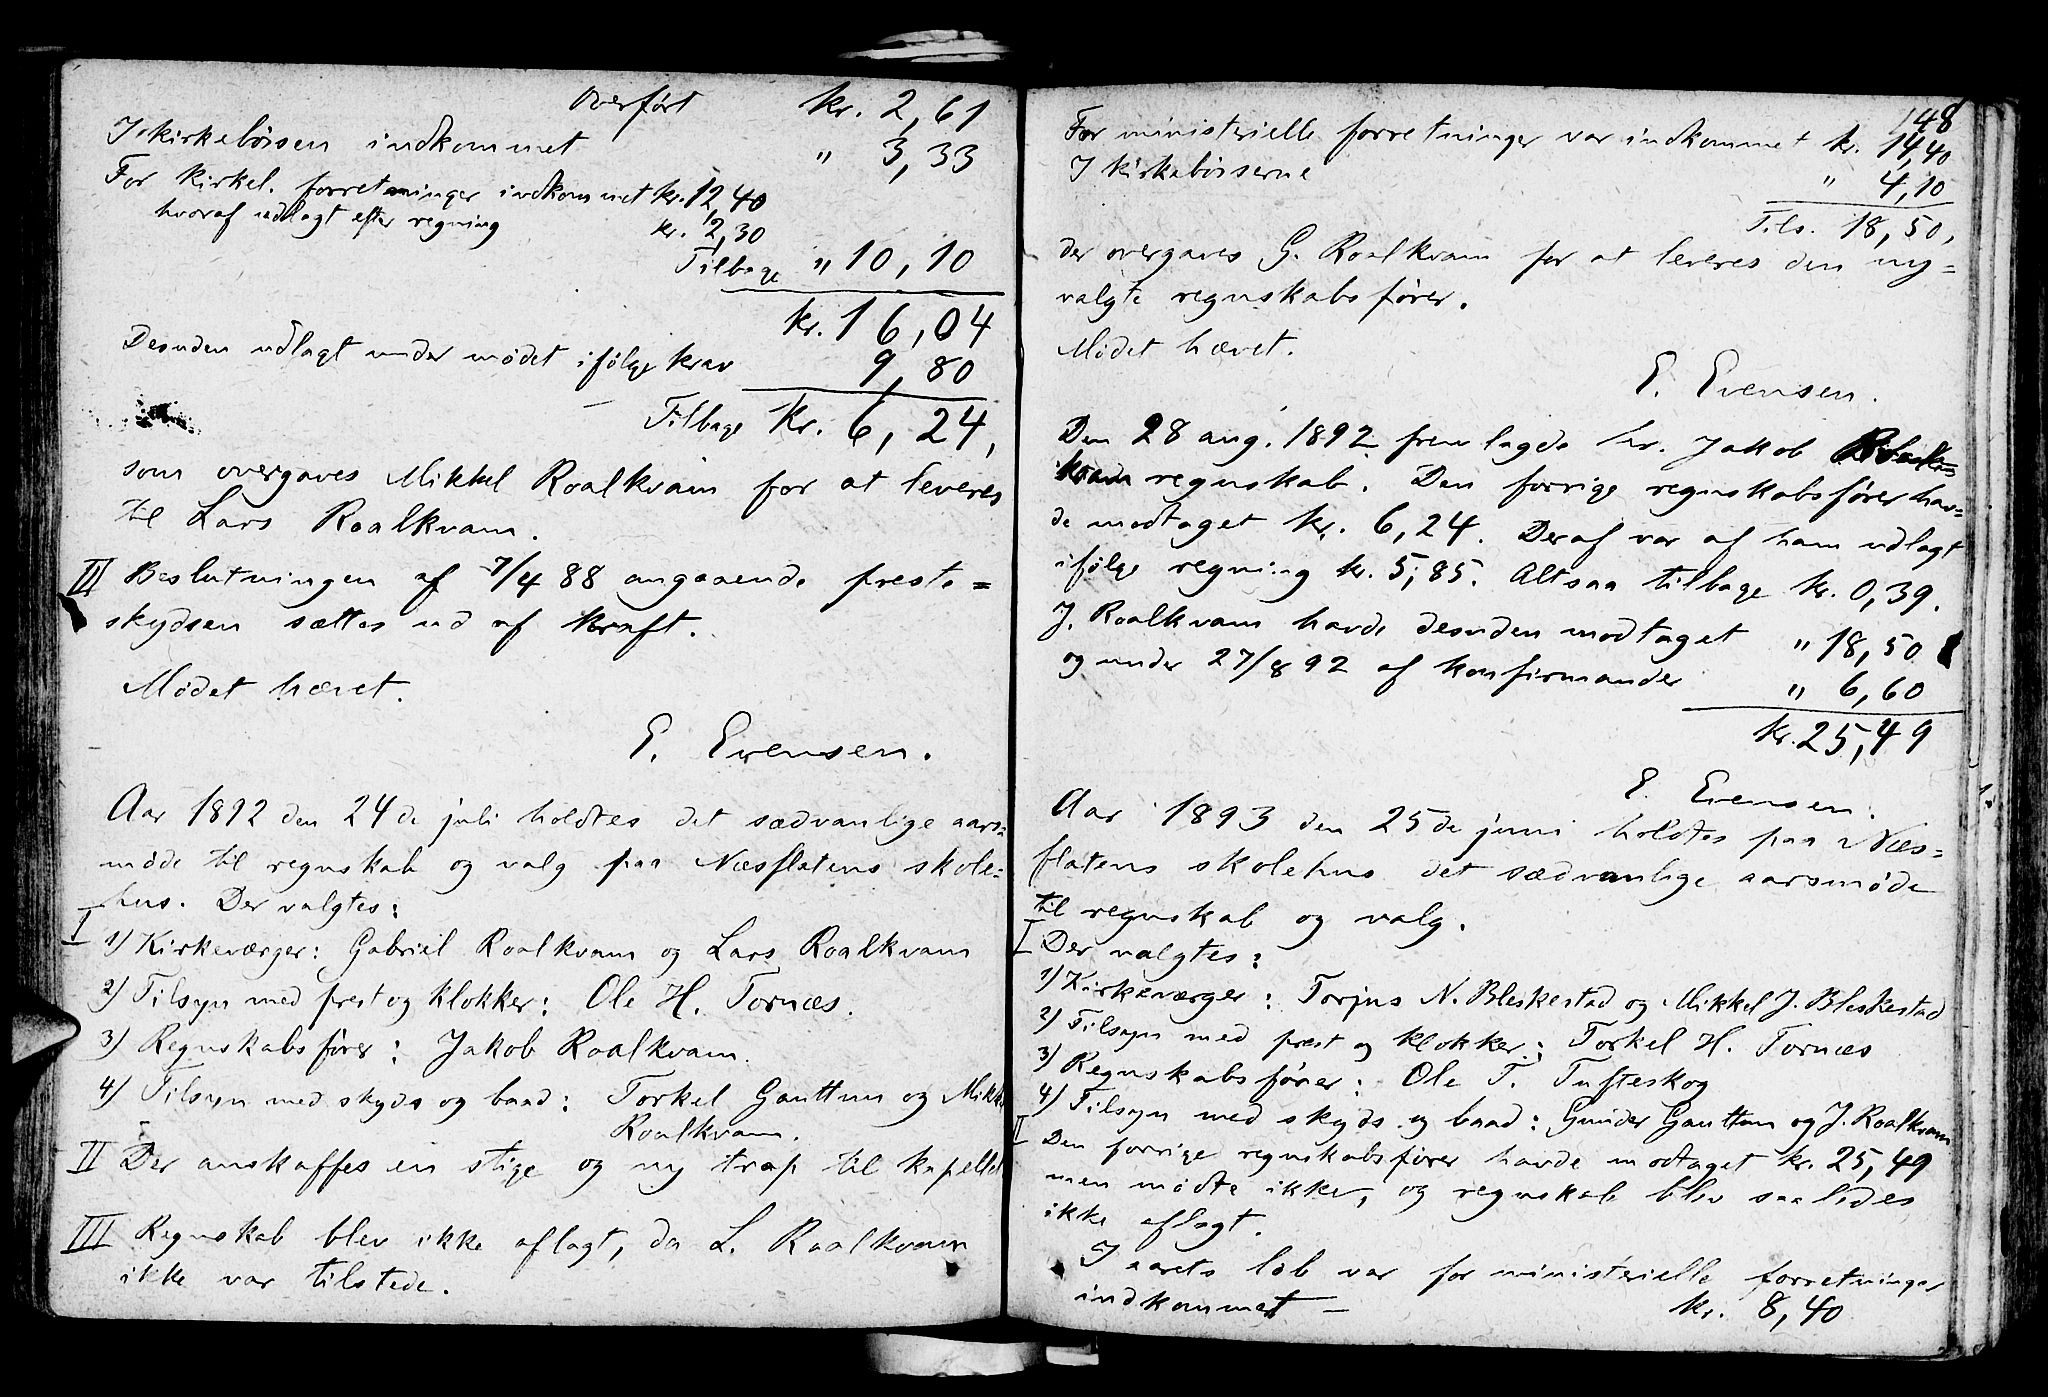 Overført kr. 2,61
I kirkebøisen indkommet " 3,33
For kirkel. forretninger indkommet kr. 12,40
hvoraf udlagt efter regning kr. 2,30
Tilbage " 10,10
kr. 16,04
Desuden udlagt under mødet ifølge krav 9,80
– Tilbage kr. 6,24,
som overgaves Mikkel Roalkvam for at leveres
til Lars Roalkvam.
III Beslutningen af 7/4 88 angaaende preste=
skydsen sættes ud af kraft.
Mødet hævet.
E. Evensen.
Aar 1892 den 24de juli holdtes det sædvanlige aars=
møde til regnskab og valg paa Næsflatens skole=
hus. Der valgtes:
I
1) Kirkeværger: Gabriel Roalkvam og Lars Roalkvam
2) Tilsyn med prest og klokker: Ole H. Tornæs.
3) Regnskabsfører: Jakob Roalkvam.
4) Tilsyn med skyds og baad: Torkel Gauttun og Mikkel
Roalkvam.
II Der anskaffes en stige og ny trap til kapellet
III Regnskab blev ikke aflagt, da L. Roalkvam
ikke var tilstede.
148
For ministerielle forretninger var indkommet kr. 14,40
I kirkebøisserne " 4,10
Tils. 18,50,
der overgaves G. Roalkvam for at leveres den ny=
valgte regnskabsfører.
Mødet hævet.
E. Evensen.
Den 28 aug. 1892 fremlagde hr. Jakob Roalk=
kvam regnskab. Den forrige regnskabsfører hav=
de modtaget kr. 6,24. Deraf var af ham udlagt
ifølge regning kr. 5,85. Altsaa tilbage kr. 0,39.
J. Roalkvam havde desuden modtaget " 18,50
og under 27/8 92 af konfirmander " 6,60
kr. 25,49
E. Evensen.
Aar 1893 den 25de juni holdtes paa Næs=
flatens skolehus det sædvanlige aarsmøde
til regnskab og valg.
I Der valgtes:
1) Kirkeværger: Torjus N. Bleskestad og Mikkel J. Bleskestad
2) Tilsyn med prest og klokker: Torkel H. Tornæs
3) Regnskabsfører: Ole T. Tufteskog
4) Tilsyn med skyds og baad: Gunder Gauttun og J. Roalkvam
II Den forrige regnskabsfører havde modtaget kr. 25,49
men mødte ikke, og regnskab blev saaledes
ikke aflagt.
I aarets løb var for ministerielle forretninger
indkommet – kr. 8,40